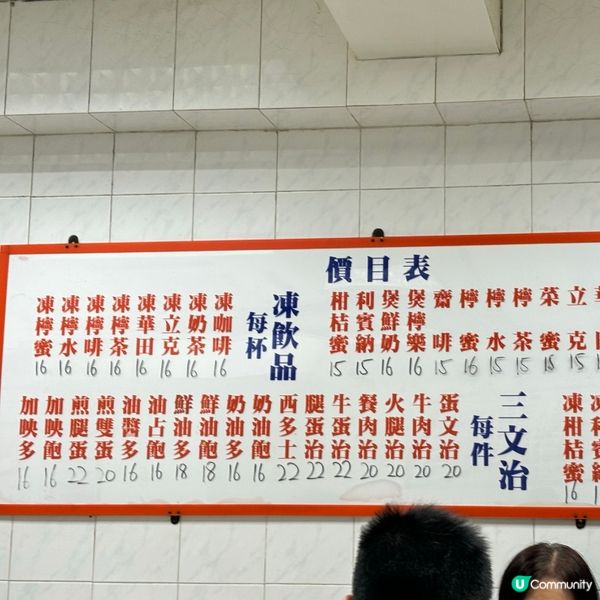 價目表
立克 15
菜蜜
檸茶 15
檸水 15
檸蜜 16
齋啡 15
煲檸樂 16
煲鮮奶 16
利賓納 15
柑桔蜜 15
凍飲品
每杯
凍咖啡 16
凍奶茶 16
凍立克 16
凍華田 16
凍檸茶 16
凍檸啡 16
凍檸水 16
凍檸蜜 16
凍柑桔蜜 16
三文治
每件
蛋文治 20
牛肉治 20
火腿治 20
餐肉治 20
牛蛋治 22
腿蛋治 22
西多士 22
奶油飽 16
奶油多 16
鮮油飽 18
鮮油多 18
油占飽 16
油醬多 16
煎雙蛋 20
煎腿蛋 22
加映飽 16
加映多 16
U Community